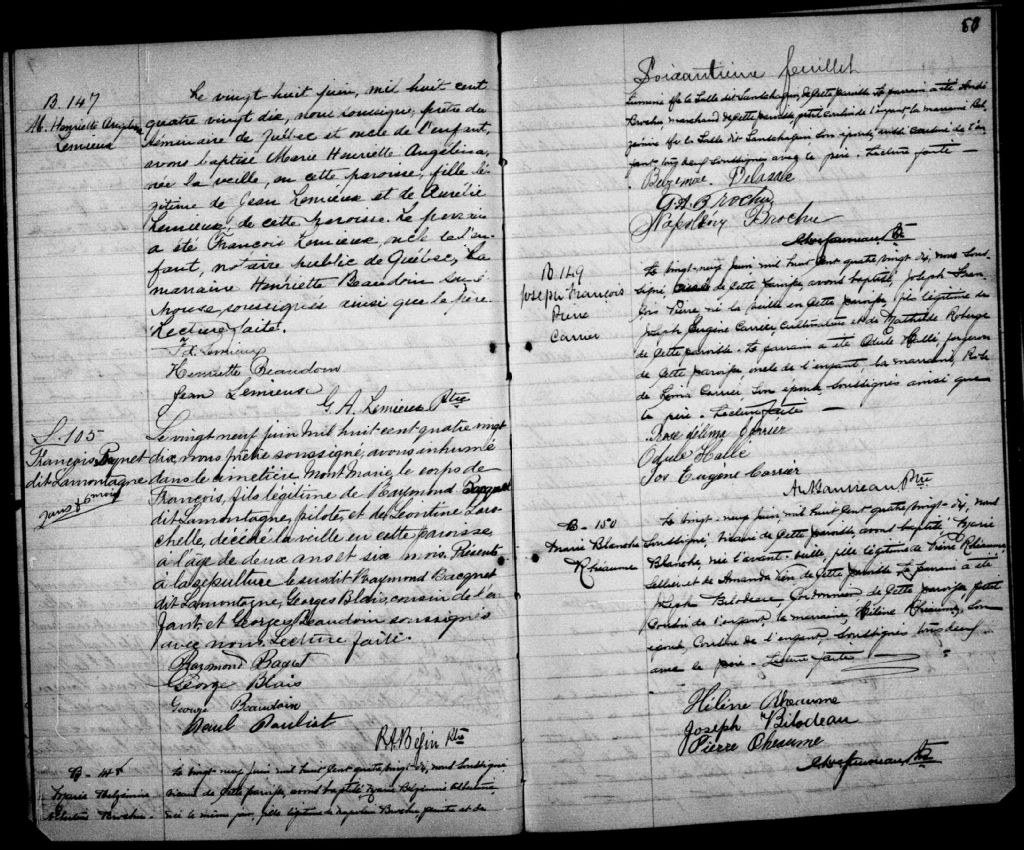 B. 147
M. Henriette Angélina
Lemieux
Le vingt huit juin, mil huit cent
quatre vingt dix, nous soussigné, prêtre du
Séminaire de Québec et oncle de l'enfant,
avons baptisé Marie Henriette Angélina,
née la veille, en cette paroisse, fille lé-
gitime de Jean Lemieux et de Aurélie
Lemieux de cette paroisse. Le parrain
a été François Lemieux, oncle de l'en-
fant, notaire public de Québec, la
marraine Henriette Beaudoin son é-
pouse, soussignés ainsi que le père.
Lecture faite.
Fd. Lemieux
Henriette Beaudoin
Jean Lemieux
G. A. Lemieux Ptre
S. 105
François Paquet
dit Lamontagne
2 ans & 6 mois
Le vingt neuf juin mil huit cent quatre vingt
dix, nous prêtre soussigné, avons inhumé
dans le cimetière Mont Marie, le corps de
François, fils légitime de Raymond Bacquet
dit Lamontagne, pilote, et de Léontine Laro-
chelle, décédé la veille en cette paroisse,
à l'âge de deux ans et six mois. Présents
à la sépulture le susdit Raymond Bacquet
dit Lamontagne, Georges Blais, cousin de l'en-
fant et Georges Beaudoin soussignés
avec nous. Lecture faite.
Raymond Baquet
George Blais
George Beaudoin
Paul Pouliot
Ptre
B - 148
Marie Belzémire
Albertine Brochu
Le vingt-neuf juin mil huit cent quatre-vingt-dix, nous soussigné
vicaire de cette paroisse, avons baptisé Marie Belzémire Albertine,
née le même jour, fille légitime de Napoléon Brochu, peintre et de
50
Soixantième feuillet
de cette paroisse. Le parrain a été
Brochu, marchand de cette paroisse, de l'enfant, la marraine Bel-
zémire son épouse, de l'en-
fant soussignés avec le père. Lecture faite —
Belzémire Delasale
G. A. Brochu
Napoléon Brochu
Ptre
B. 149
Joseph François
Pierre
Carrier
Le vingt-neuf juin mil huit cent quatre vingt dix, nous sous-
signé, vicaire de cette paroisse, avons baptisé Joseph Fran-
çois Pierre, né la veille en cette paroisse, fils légitime de
Joseph Eugène Carrier, cultivateur et de Mathilde Roberge
de cette paroisse. Le parrain a été Odule Hallé, forgeron
de cette paroisse oncle de l'enfant, la marraine, Rose
Carrier, son épouse soussignés ainsi que
le père. Lecture faite —
Rose délima Carrier
Odule Hallé
Jos Eugène Carrier
Ptre
B - 150
Marie Blanche
Rhéaume
Le vingt-neuf juin, mil huit cent quatre-vingt-dix, nous
soussigné, vicaire de cette paroisse, avons baptisé Marie
Blanche, née l'avant-veille, fille légitime de Pierre Rhéaume,
sellier et de Amanda de cette paroisse. Le parrain a été
Joseph Bilodeau, cordonnier de cette paroisse, petit
cousin de l'enfant, la marraine, Hélène Rhéaume, son
épouse, cousine de l'enfant, soussignés tous deux
avec le père. Lecture faite —
Hélène Rheaume
Joseph Bilodeau
Pierre Rheaume
Ptre